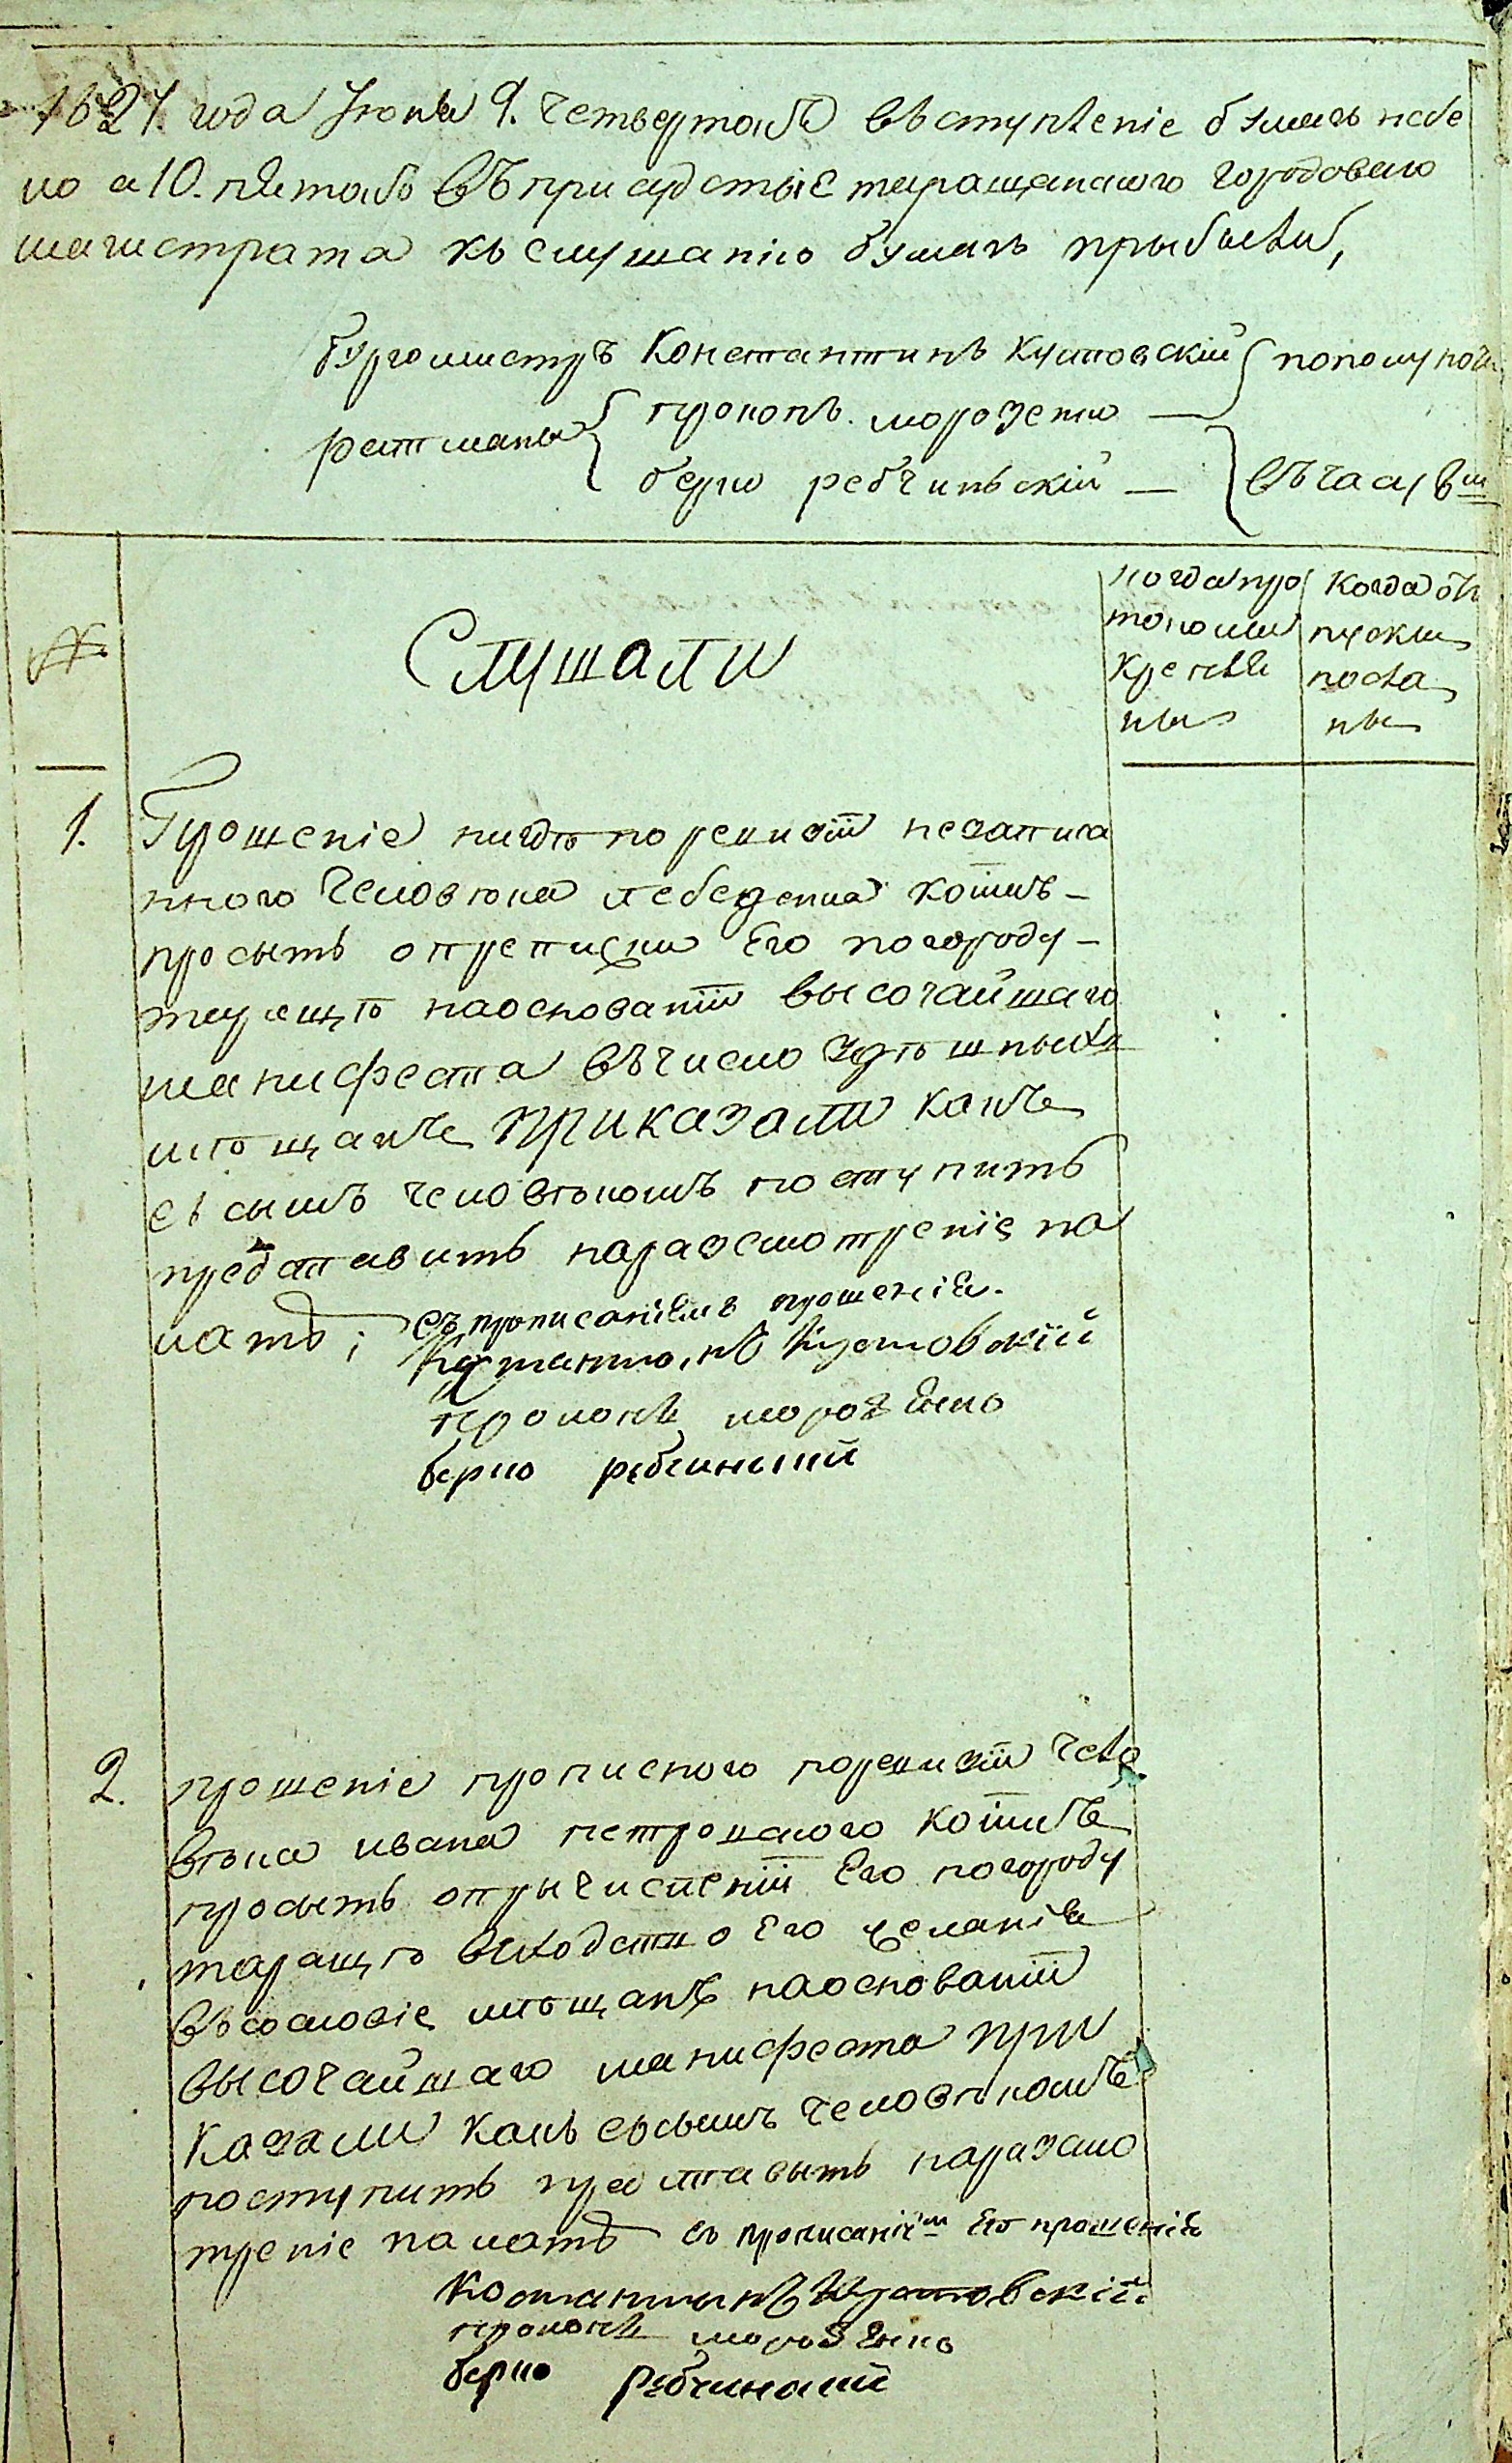 1827. года Іюня 9. Четвертокъ въ ступленіе бумагъ небы
ло а 10. пятокъ въ присудствіе таращанского городоваго
магистрата къ слушанію бумагъ прыбыли,
бургомистръ Константинъ Кустовскій пополуночи
ратманы прокопъ. морозенко —
берко ребчинъскій — въ часу 8м
№
Слушали
когда про
токолы
крепле
ны
когда от
пуски
посла
ны
1. Прошеніе нигде по ревизіи незаписа
нного Человека лебеденка коимъ –
просыть о преписки Его по городу –
таращѣ наоснованіи высочайшаго
манифеста въ число здѣшныхъ
мѣщанъ приказали какъ
съ сымъ человѣкомъ поступить
представить на разсмотреніе па
латѣ; съ прописаніемъ прошенія.
Костантинъ Кустовскій
прокопъ морозенко
берко ребчинский
2. прошеніе прописного по ревизіи чело
вѣка ивана петровского коимъ
просыть о прычисленіи Его по городу
таращѣ въ сходство Его желанія
въ сословіе мѣщанъ наоснованіи
высочайшаго манифеста при
казали какъ съ сымъ человѣкомъ
поступить представыть на разсмо
треніе палатѣ съ прописаніем его прошенія
Костантынъ Кустовскій
прокопъ морозенко
берко Ребчинский